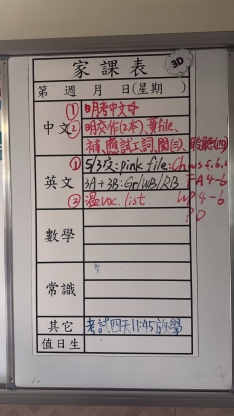 3D
家課表
第 週 月 日(星期 )
中文
① 明考中文卡
② 明交作(2本)、黃file、
補、應試工詞、閱(三)、
英文
① 5/3交: pink file: Ch
3A + 3B: Gr/WB/RB
③ 溫voc. list
4-6
數學
常識
其它
考試四天11:45放學
值日生